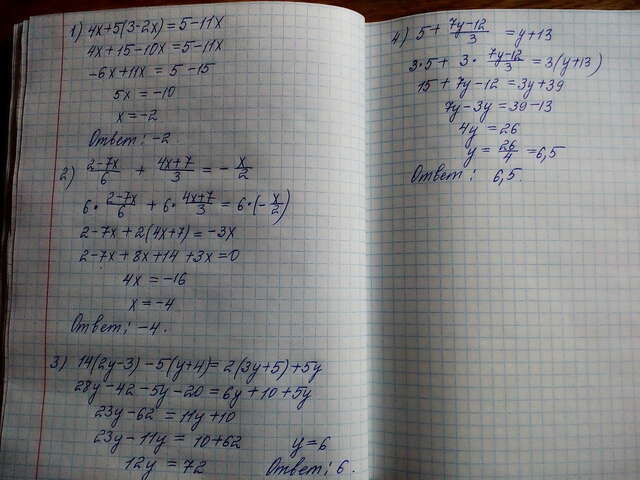 1) 4x+5(3-2x)=5-11x
4x+15-10x=5-11x
-6x+11x = 5-15
5x = -10
x = -2
Ответ: -2.
2) (2-7x)/6 + (4x+7)/3 = -x/2
6·(2-7x)/6 + 6·(4x+7)/3 = 6·(-x/2)
2-7x+2(4x+7)=-3x
2-7x+8x+14+3x=0
4x = -16
x = -4
Ответ: -4.
3) 14(2y-3)-5(y+4)=2(3y+5)+5y
28y-42-5y-20=6y+10+5y
23y-62=11y+10
23y-11y = 10+62
12y = 72
y=6
Ответ: 6.
4) 5+(7y-12)/3 = y+13
3·5+ 3·(7y-12)/3 = 3(y+13)
15+7y-12=3y+39
7y-3y=39-13
4y = 26
y = 26/4 = 6,5
Ответ: 6,5.